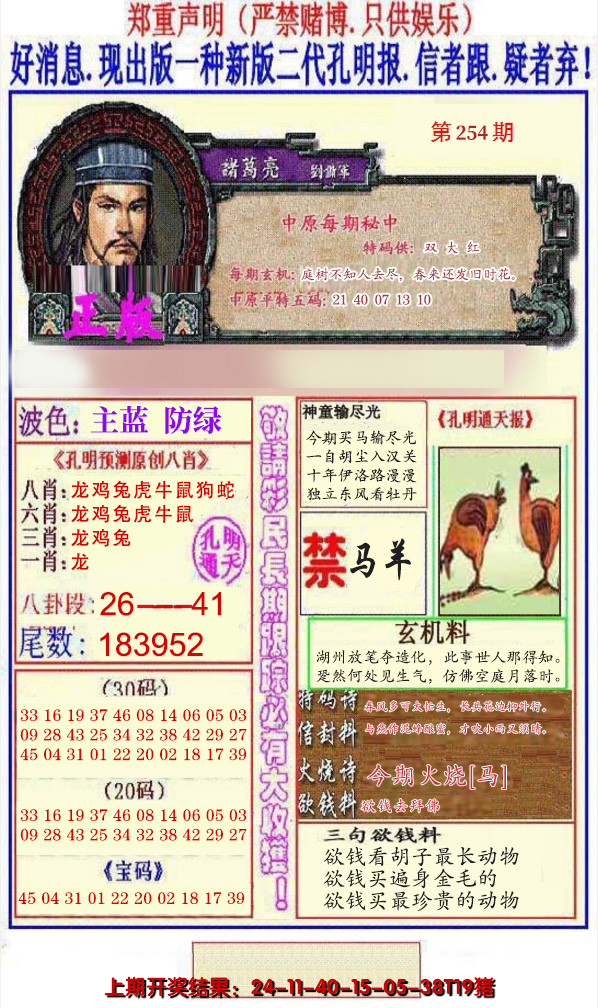 郑重声明（严禁赌博.只供娱乐）
好消息.现出版一种新版二代孔明报.信者跟.疑者弃！
第254期
諸葛亮
劉備軍
中原每期秘中
特码供：双大红
每期玄机：庭树不知人去尽，春来还发旧时花。
中原平特五码：21 40 07 13 10
正版
波色：主蓝 防绿
《孔明预测原创八肖》
八肖：龙鸡兔虎牛鼠狗蛇
六肖：龙鸡兔虎牛鼠
三肖：龙鸡兔
一肖：龙
孔明
通天
八卦段：26——41
尾数：183952
(30码)
33 16 19 37 46 08 14 06 05 03
09 28 43 25 34 32 38 42 29 27
45 04 31 01 22 20 02 18 17 39
(20码)
33 16 19 37 46 08 14 06 05 03
09 28 43 25 34 32 38 42 29 27
《宝码》
45 04 31 01 22 20 02 18 17 39
敬請彩民長期跟踪必有大收獲！
神童输尽光
今期买马输尽光
一自胡尘入汉关
十年伊洛路漫漫
独立东风看牡丹
《孔明通天报》
禁马羊
玄机料
湖州放笔夺造化，此事世人那得知。
跫然何处见生气，仿佛空庭月落时。
特码诗 春风多可太忙生，长共花边柳外行。
信封料 与燕作泥蜂酿蜜，才吹小雨又须晴。
火烧诗 今期火烧[马]
欲钱料 欲钱去拜佛
三句欲钱料
欲钱看胡子最长动物
欲钱买遍身金毛的
欲钱买最珍贵的动物
上期开奖结果：24-11-40-15-05-38T19猪